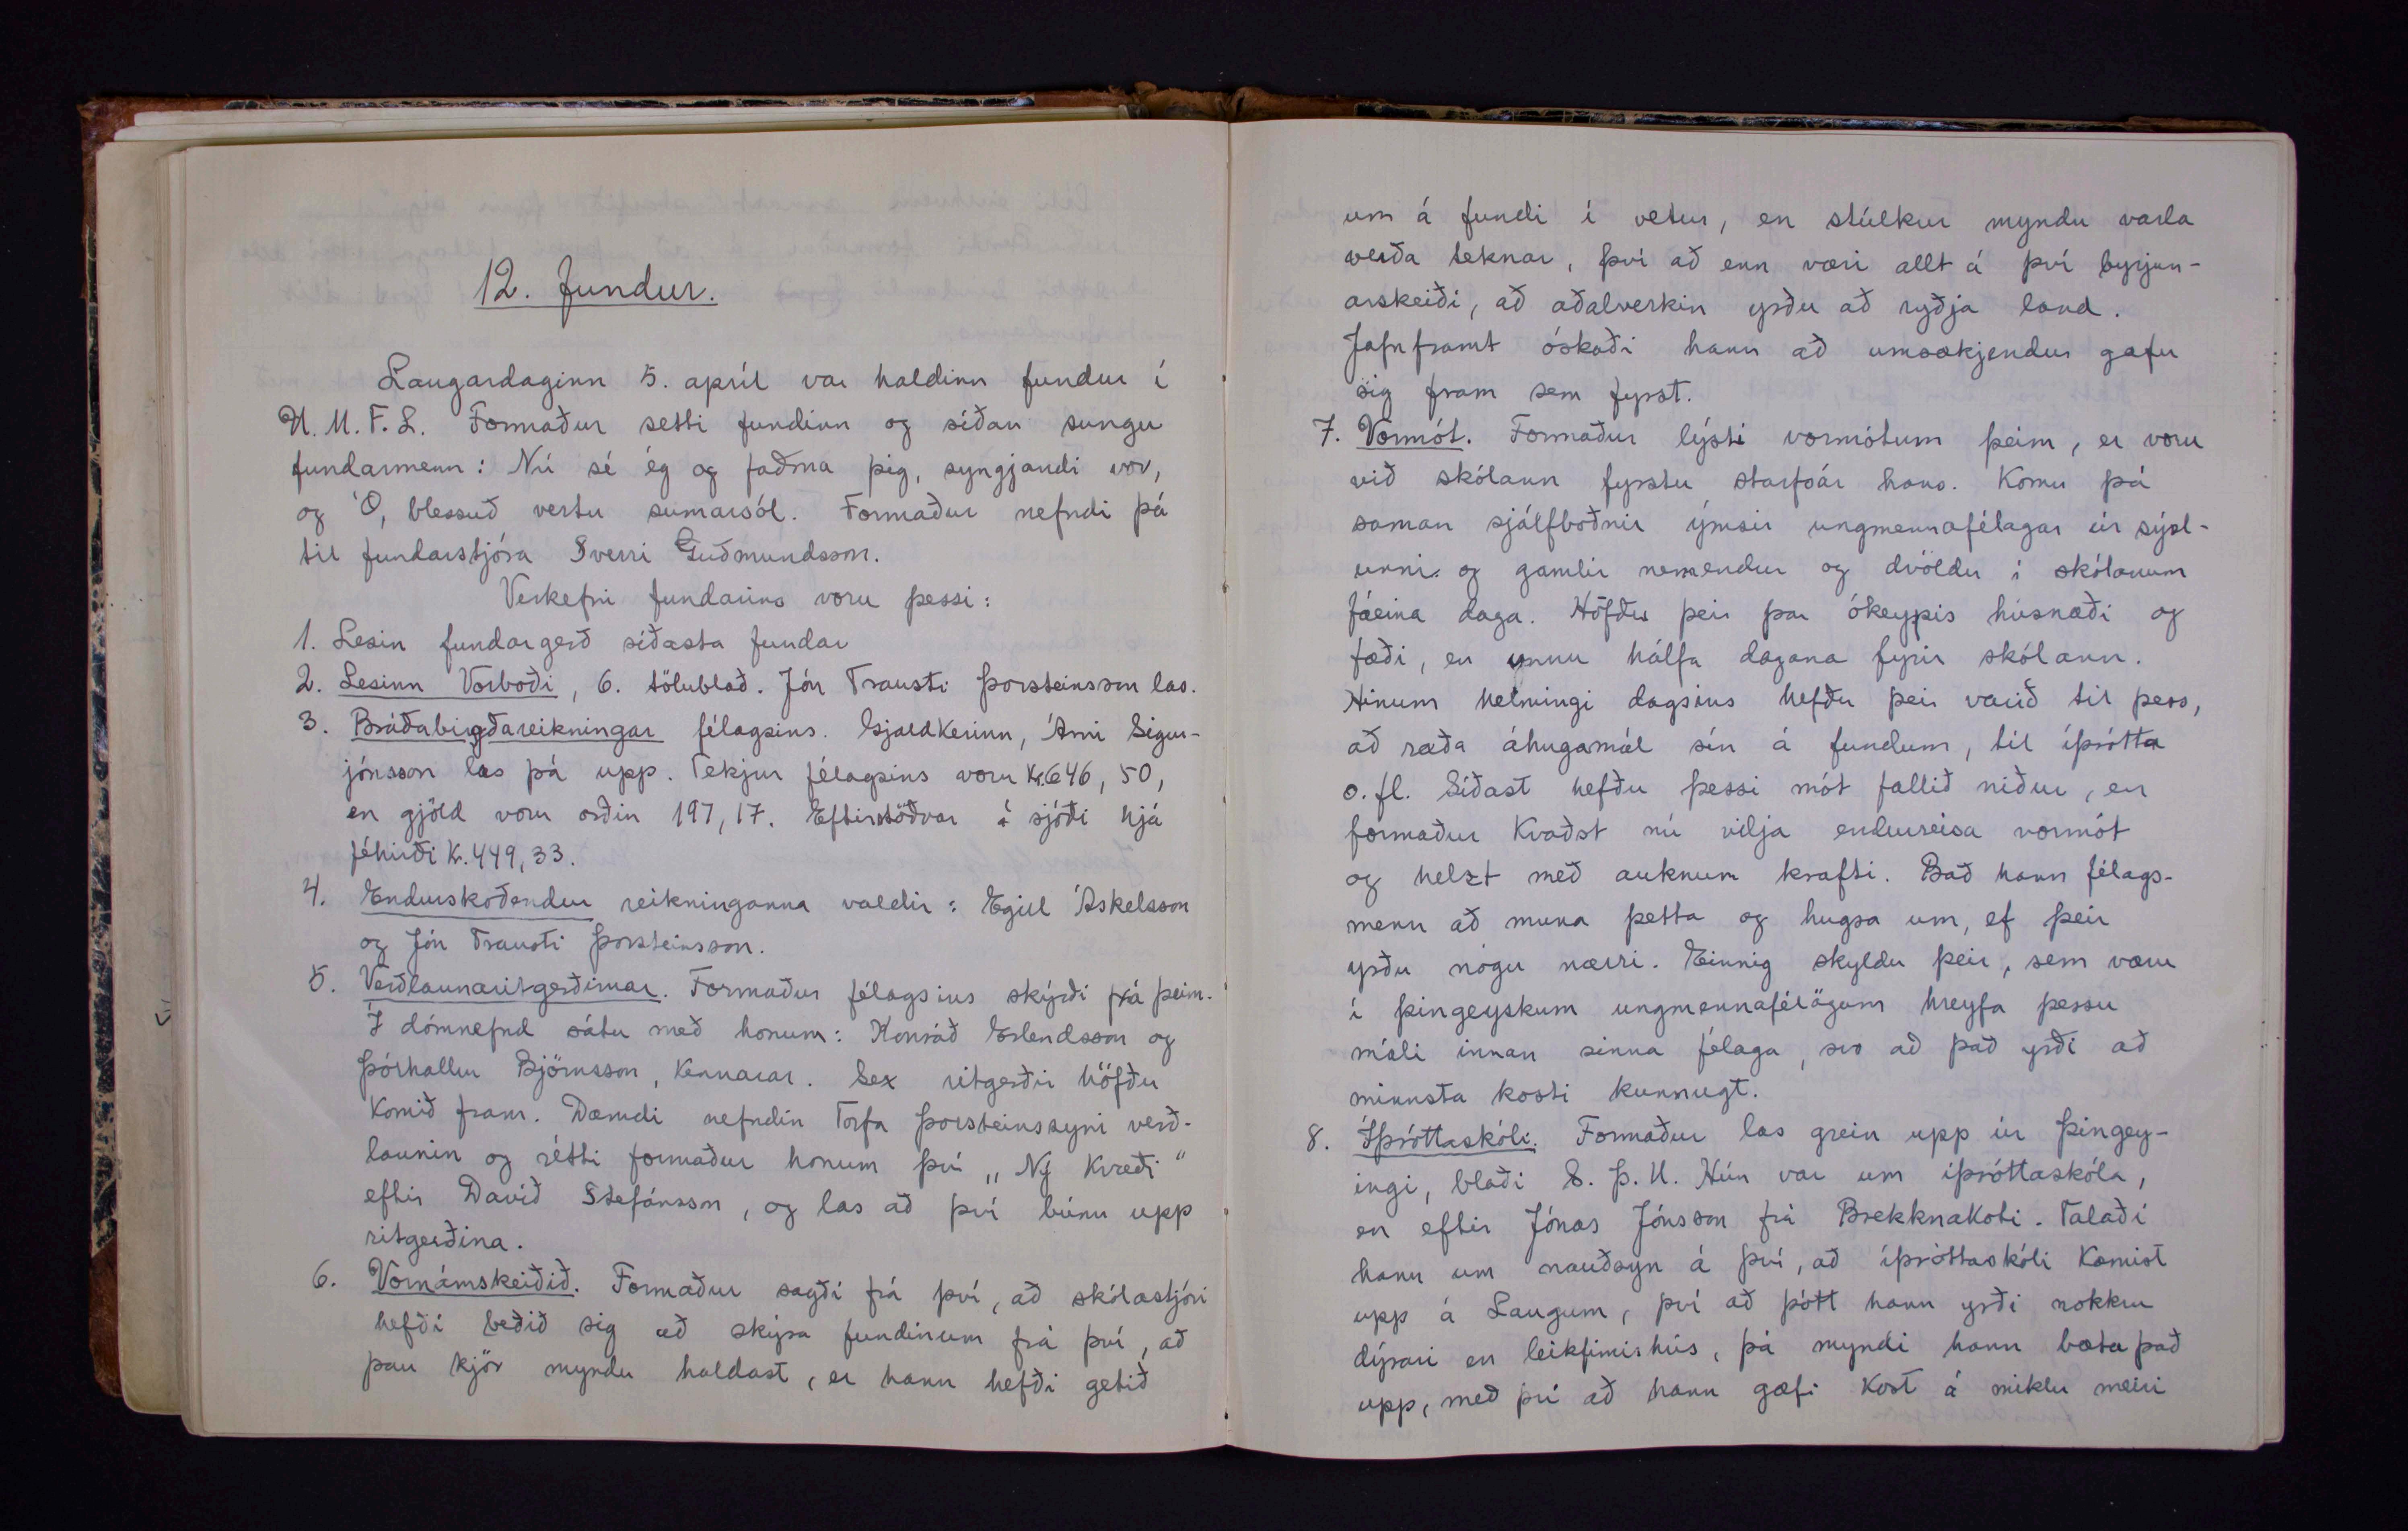 12. fundur.
Laugardaginn 5. apríl var haldinn fundur í
U. M. F. L. Formaður setti fundinn og síðan sungu
fundarmenn: Nú sé ég og faðma þig, syngjandi vor,
og Ó, blessuð vertu sumarsól. Formaður nefndi þá
til fundarstjóra Sverri Guðmundsson.
Verkefni fundarins voru þessi:
1. Lesin fundargerð síðasta fundar
2. Lesinn Vorboði, 6. tölublað. Jón Trausti Þorsteinsson las.
3. Bráðabirgðareikningar félagsins. Gjaldkerinn, Árni Sigur-
jónsson las þá upp. Tekjur félagsins voru kr. 646, 50,
en gjöld voru orðin 197, 17. Eftirstöðvar á sjóði hjá
féhirði kr. 449, 33.
4. Endurskoðendur reikninganna valdir: Egill Áskelsson
og Jón Trausti Þorsteinsson.
5. Verðlaunaritgerðirnar. Formaður félagsins skýrði frá þeim.
Í dómnefnd sátu með honum: Konráð Erlendsson og
Þórhallur Björnsson, kennarar. Sex ritgerðir höfðu
komið fram. Dæmdi nefndin Torfa Þorsteinssyni verð-
launin og rétti formaður honum því „Ný kvæði“
eftir Davíð Stefánsson, og las að því búnu upp
ritgerðina.
6. Vornámskeiðið. Formaður sagði frá því, að skólastjóri
hefði beðið sig að skýra fundinum frá því, að
þau kjör myndu haldast, er hann hefði getið
um á fundi í vetur, en stúlkur myndu varla
verða teknar, því að enn væri allt á því byrjun-
arskeiði, að aðalverkin yrðu að ryðja land.
Jafnframt óskaði hann að umsækjendur gæfu
sig fram sem fyrst.
7. Vormót. Formaður lýsti vormótum þeim, er voru
við skólann fyrstu starfsár hans. Komu þá
saman sjálfboðnir ýmsir ungmennafélagar úr sýsl-
unni og gamlir nemendur og dvöldu í skólanum
fáeina daga. Höfðu þeir þar ókeypis húsnæði og
fæði, en unnu hálfa dagana fyrir skólann.
Hinum helmingi dagsins hefðu þeir varið til þess,
að ræða áhugamál sín á fundum, til íþrótta
o. fl. Síðast hefðu þessi mót fallið niður, en
formaður kvaðst nú vilja endurreisa vormót
og helzt með auknum krafti. Bað hann félags-
menn að muna þetta og hugsa um, ef þeir
yrðu nógu nærri. Einnig skyldu þeir, sem væru
í þingeyskum ungmennafélögum hreyfa þessu
máli innan sinna félaga, svo að það yrði að
minnsta kosti kunnugt.
8. Íþróttaskóli. Formaður las grein upp úr Þingey-
ingi, blaði S. Þ. U. Hún var um íþróttaskóla,
en eftir Jónas Jónsson frá Brekknakoti. Talaði
hann um nauðsyn á því, að íþróttaskóli komist
upp á Laugum, því að þótt hann yrði nokkru
dýrari en leikfimishús, þá myndi hann bæta það
upp, með því að hann gæfi kost á miklu meiri